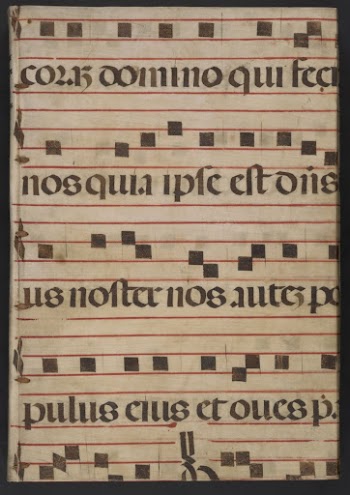 coraȝ domino qui feci
nos quia ipse est dn̄s
us noster nos auteȝ po
pulus eius et oues p